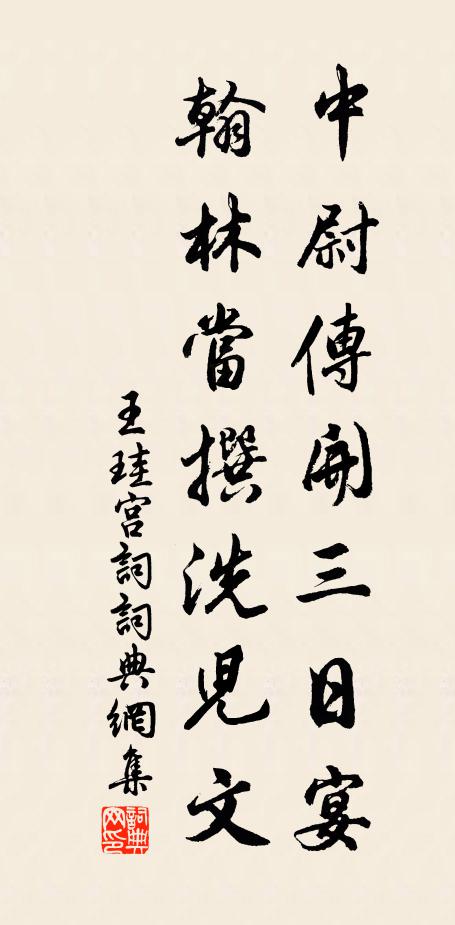 中尉傳開三日宴
翰林當撰洗兒文
王珪宮詞詞典網集
詞典網印